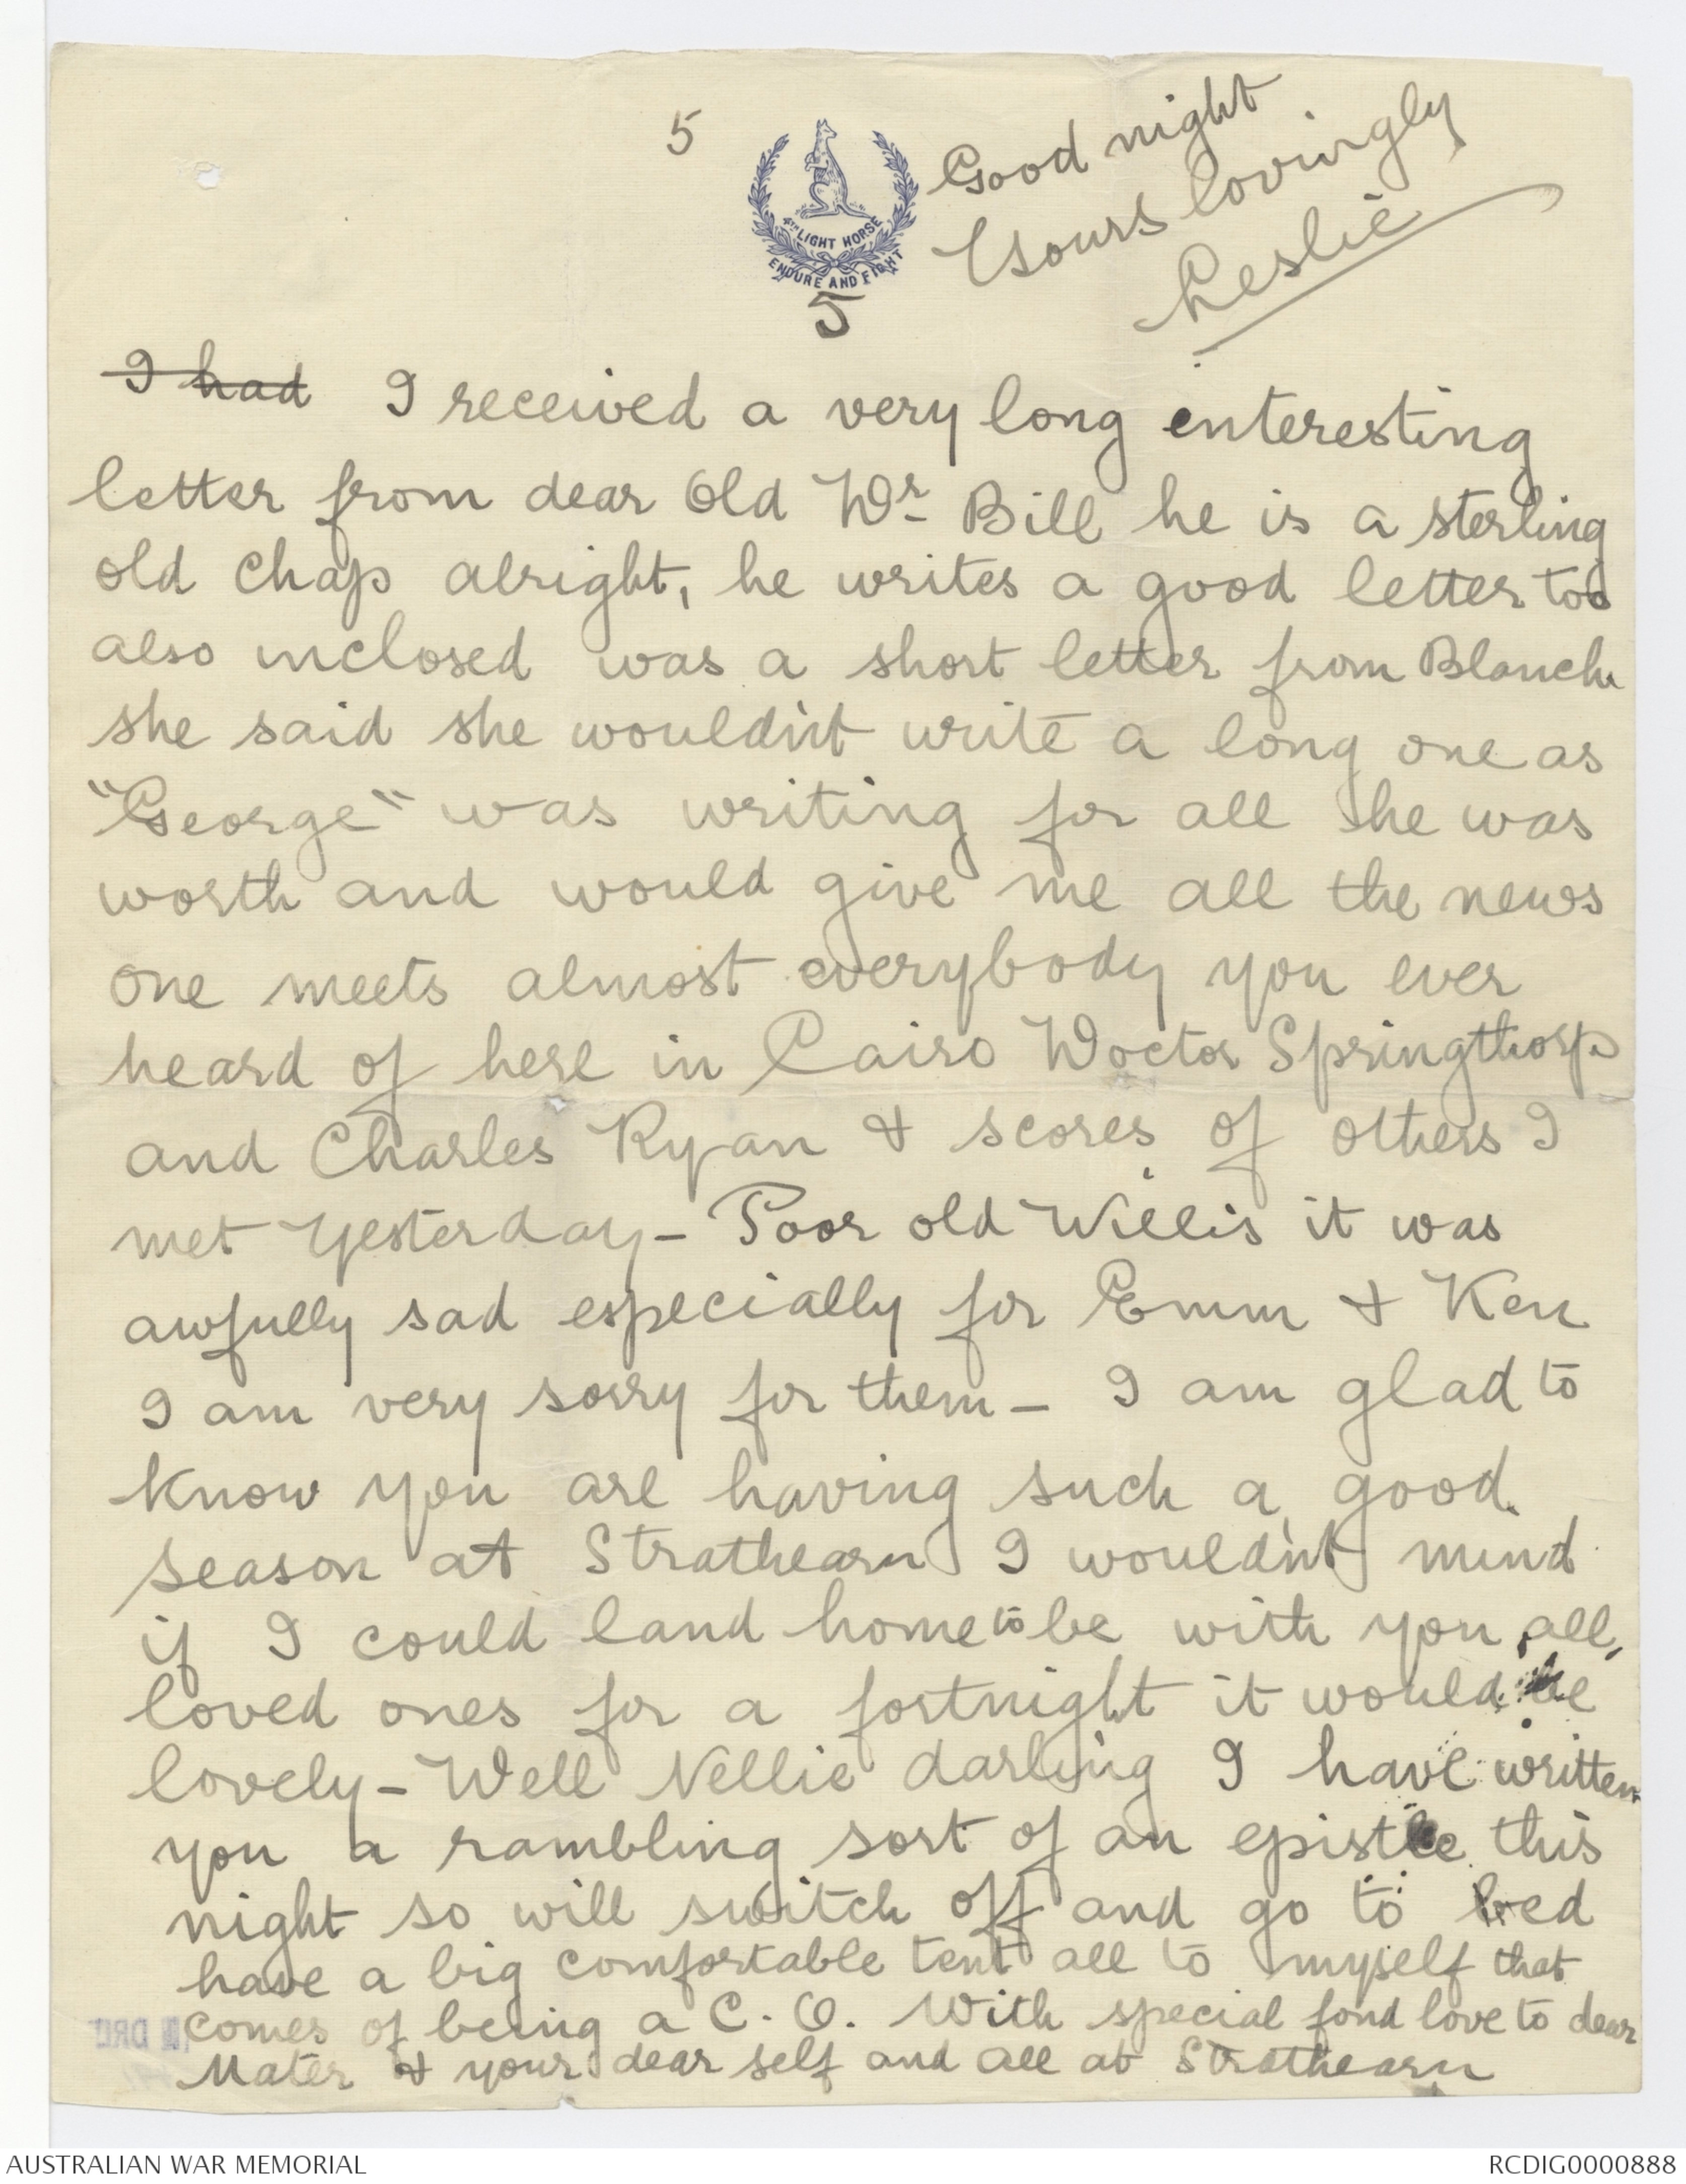 5
4TH LIGHT HORSE
ENDURE AND FIGHT
5
Good night
Yours lovingly
Leslie
I had I received a very long enteresting
letter from dear Old Dr Bill he is a sterling
old chap alright, he writes a good letter too
also inclosed was a short letter from Blanch
she said she wouldn't write a long one as
"George" was writing for all he was
worth and would give me all the news
one meets almost everybody you ever
heard of here in Cairo Doctor Springthorpe
and Charles Ryan & scores of others I
met yesterday - Poor old Willis it was
awfully sad especially for Emm & Ken
I am very sorry for them - I am glad to
know you are having such a good
season at Strathearn I wouldn't mind
if I could land home to be with you all,
loved ones for a fortnight it would be
lovely - Well Nellie darling I have written
you a rambling sort of an epistle this
night so will switch off and go to bed
have a big comfortable tent all to myself that
comes of being a C.O. With special fond love to dear
Mater & your dear self and all at Strathearn
AUSTRALIAN WAR MEMORIAL
RCDIG0000888